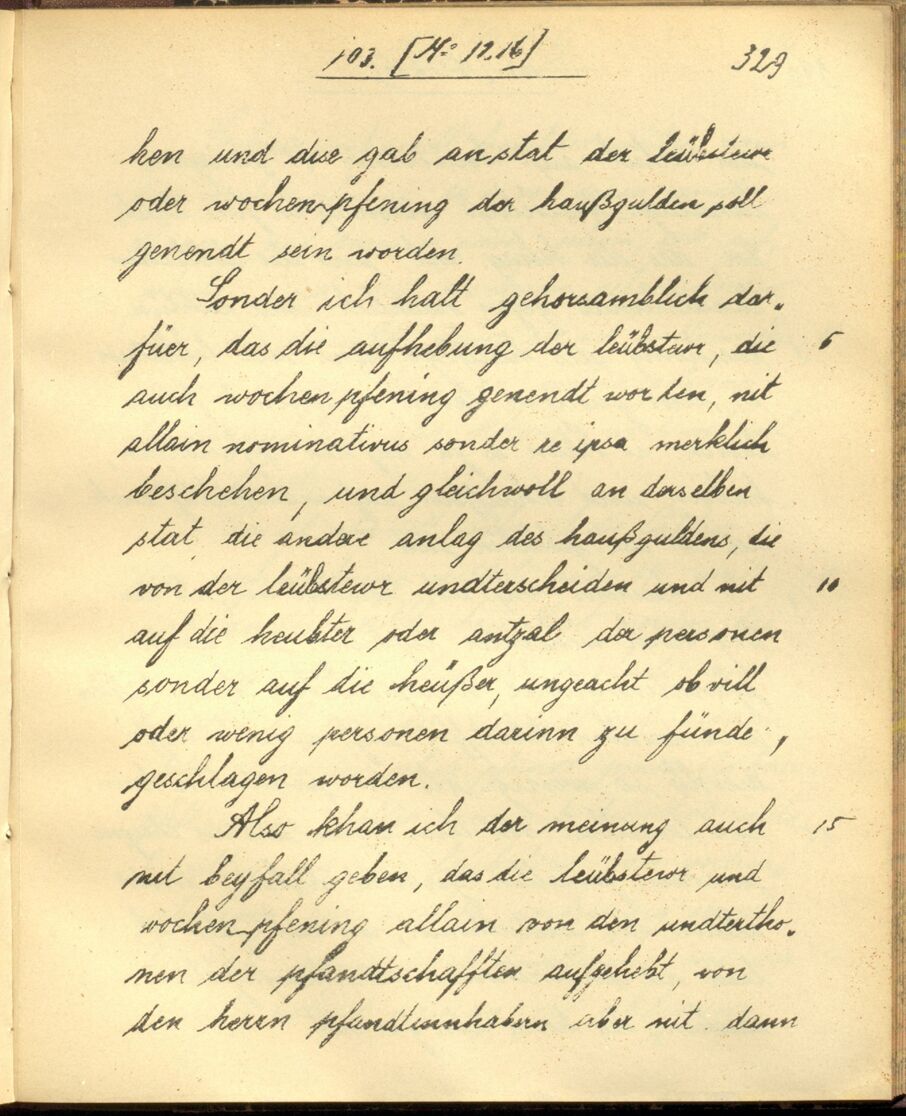 103. [No 12.16] 329
hen und dise gab anstat der leübstewr
oder wochenpfening der haußgulden soll
genendt sein worden.
Sonder ich halt gehorsamblich dar-
füer, das die aufhebung der leübstewr, die 5
auch wochenpfening genendt worden, nit
allain nominativus sonder re ipsa merklich
beschehen, und gleichwoll an derselben
stat die andere anlag des haußguldens, die
von der leübstewr undterscheiden und nit 10
auf die heubter oder antzal der personen
sonder auf die heüßer, ungeacht ob vill
oder wenig personen darinn zu fünde,
geschlagen worden.
Also khan ich der meinung auch 15
nit beyfall geben, das die leübstewr und
wochenpfening allain von den undertho-
nen der pfandtschafften aufgehebt, von
den herrn pfandtinnhabern aber nit dann